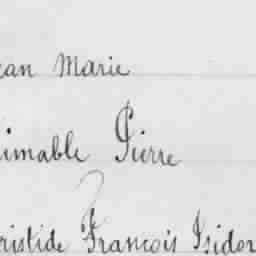 ean Marie
imable Pierre
ristide François Isidor